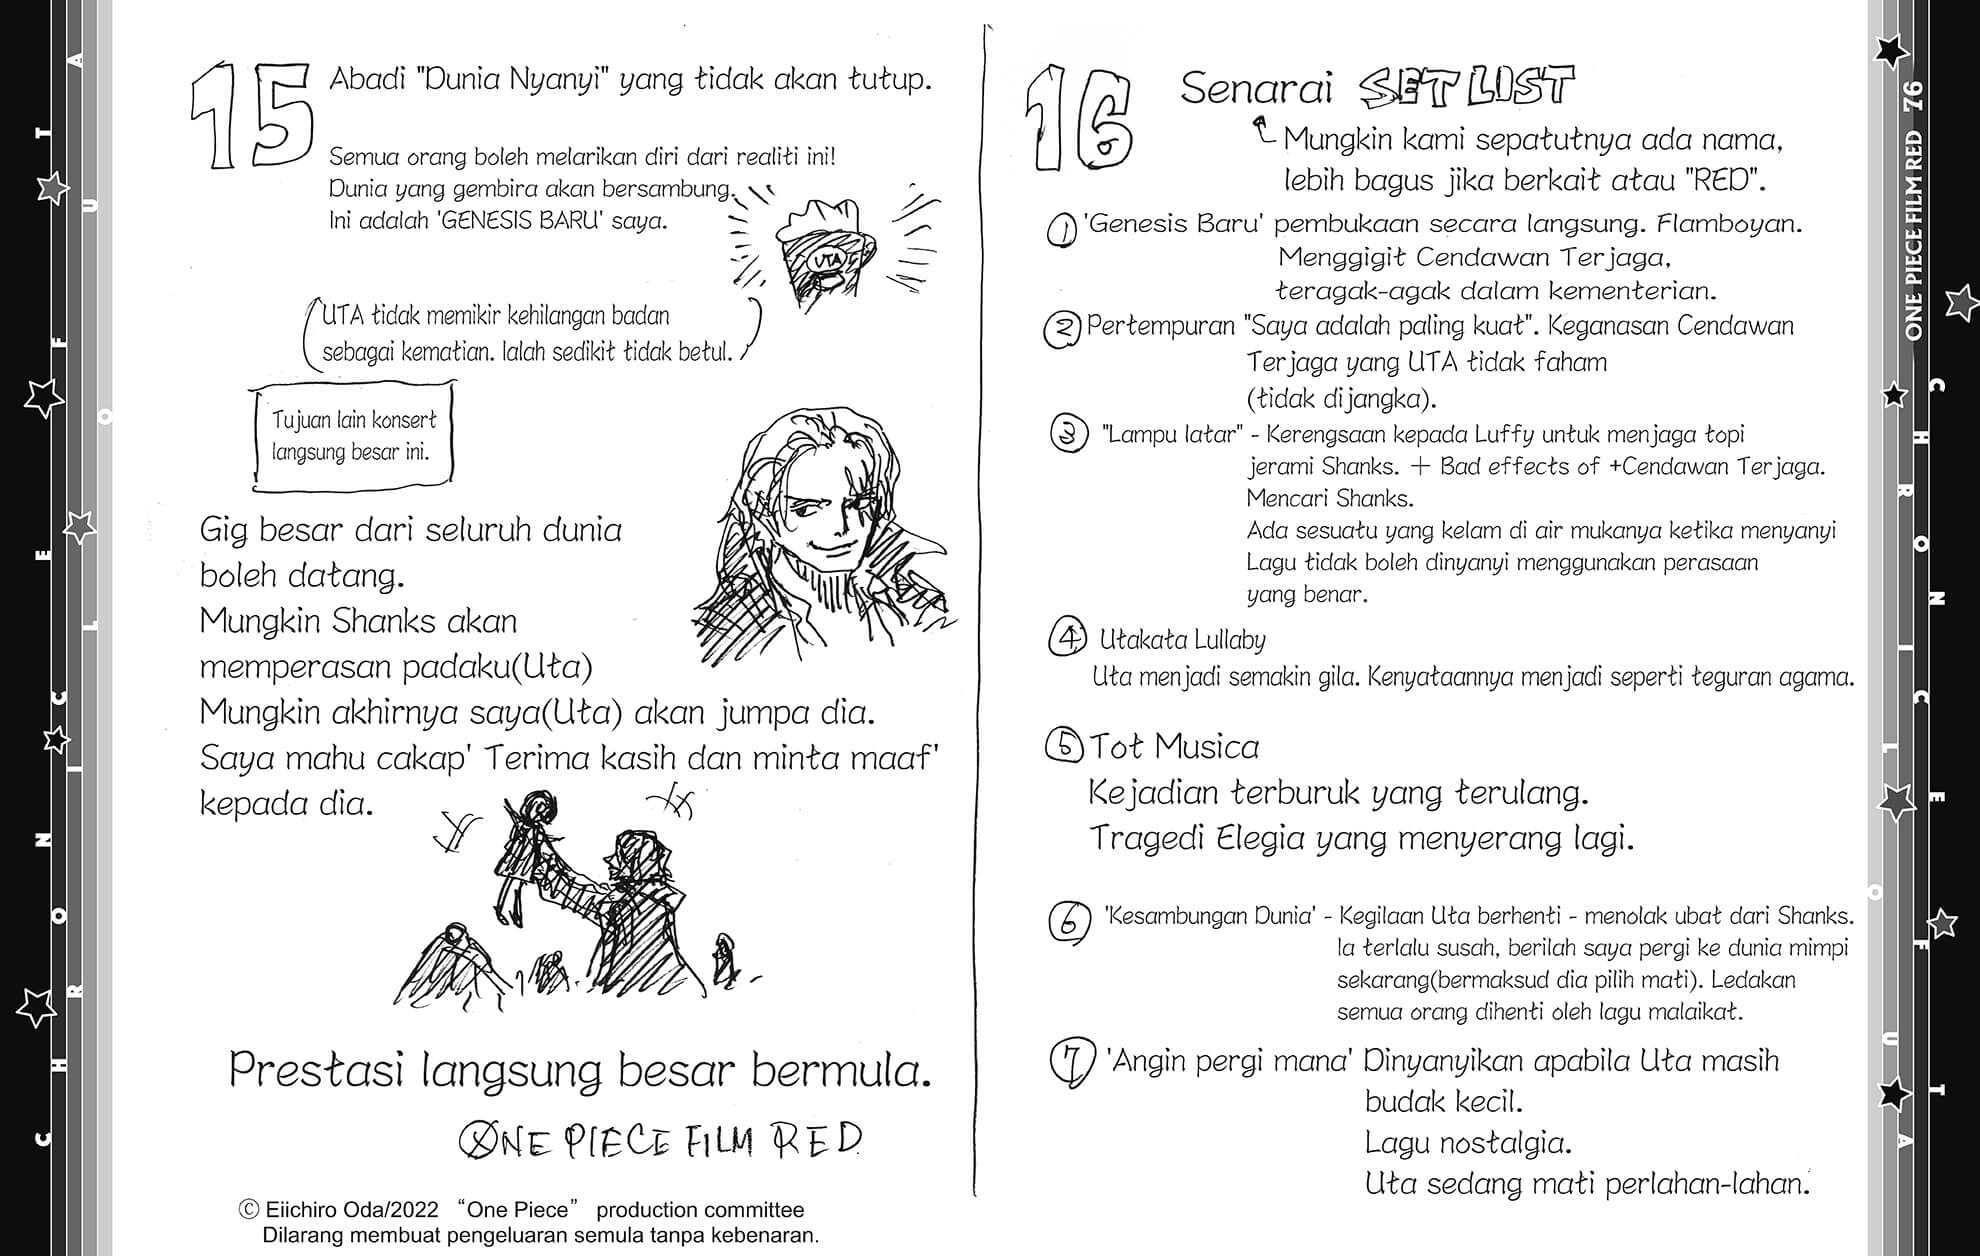 15
Abadi "Dunia Nyanyi" yang tidak akan tutup.
Semua orang boleh melarikan diri dari realiti ini!
Dunia yang gembira akan bersambung.
Ini adalah 'GENESIS BARU' saya.
UTA
UTA tidak memikir kehilangan badan
sebagai kematian. Ialah sedikit tidak betul.
Tujuan lain konsert
langsung besar ini.
Gig besar dari seluruh dunia
boleh datang.
Mungkin Shanks akan
memperasan padaku(Uta)
Mungkin akhirnya saya(Uta) akan jumpa dia.
Saya mahu cakap' Terima kasih dan minta maaf'
kepada dia.
Prestasi langsung besar bermula.
ONE PIECE FILM RED
© Eiichiro Oda/2022 “One Piece” production committee
Dilarang membuat pengeluaran semula tanpa kebenaran.
16
Senarai SET LIST
Mungkin kami sepatutnya ada nama,
lebih bagus jika berkait atau "RED".
① 'Genesis Baru' pembukaan secara langsung. Flamboyan.
Menggigit Cendawan Terjaga,
teragak-agak dalam kementerian.
② Pertempuran "Saya adalah paling kuat". Keganasan Cendawan
Terjaga yang UTA tidak faham
(tidak dijangka).
③ "Lampu latar" - Kerengsaan kepada Luffy untuk menjaga topi
jerami Shanks. + Bad effects of +Cendawan Terjaga.
Mencari Shanks.
Ada sesuatu yang kelam di air mukanya ketika menyanyi
Lagu tidak boleh dinyanyi menggunakan perasaan
yang benar.
④ Utakata Lullaby
Uta menjadi semakin gila. Kenyataannya menjadi seperti teguran agama.
⑤ Tot Musica
Kejadian terburuk yang terulang.
Tragedi Elegia yang menyerang lagi.
⑥ 'Kesambungan Dunia' - Kegilaan Uta berhenti - menolak ubat dari Shanks.
Ia terlalu susah, berilah saya pergi ke dunia mimpi
sekarang(bermaksud dia pilih mati). Ledakan
semua orang dihenti oleh lagu malaikat.
⑦ 'Angin pergi mana' Dinyanyikan apabila Uta masih
budak kecil.
Lagu nostalgia.
Uta sedang mati perlahan-lahan.
CHRONICLE OF UTA
ONE PIECE FILM RED 76
CHRONICLE OF UTA